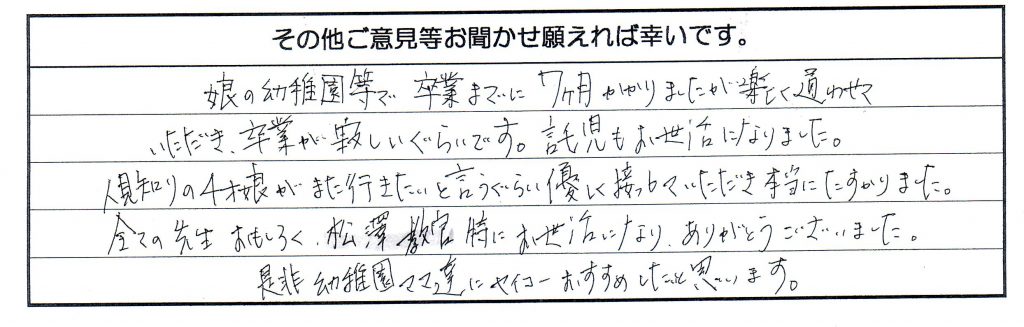 その他ご意見等お聞かせ願えれば幸いです。
娘の幼稚園等で 卒業までに 7ヶ月かかりましたが楽しく通わせて
いただき、卒業が寂しいぐらいです。託児もお世話になりました。
人見知りの4才娘がまた行きたいと言うぐらい優しく接っしていただき本当にたすかりました。
全ての先生おもしろく、松澤教官 特にお世話になり、ありがとうございました。
是非 幼稚園ママ達にセイコーおすすめしたいと思います。